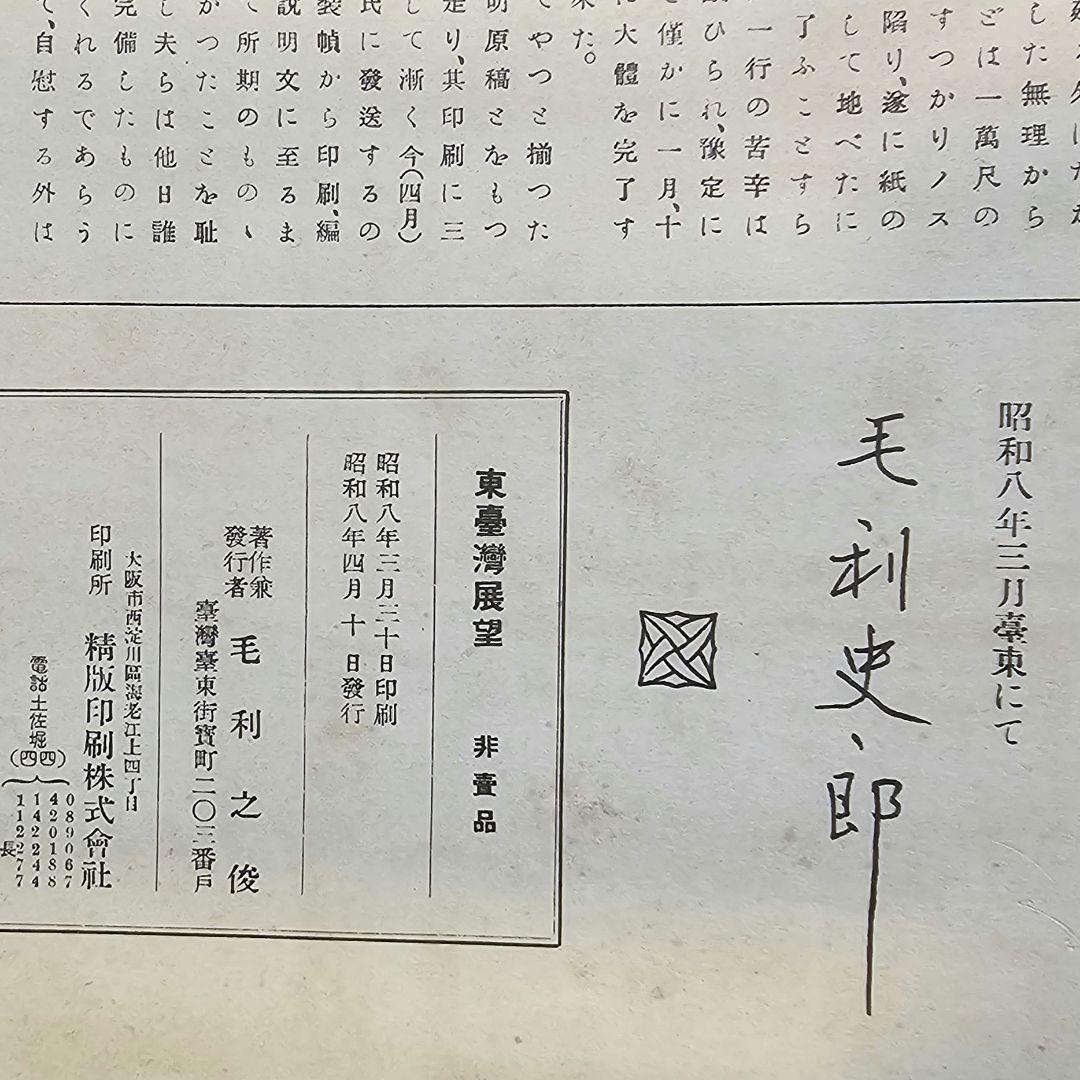 した無理から
どは一萬尺の
すつかりノス
陷り、遂に紙の
して地べたに
了ふことすら
一行の苦辛は
ひられ、豫定に
僅かに一月、十
に大體を完了す
來た。
てやつと揃つた
明原稿とをもつ
走り、其印刷に三
して漸く今(四月)
民に發送するの
裝幀から印刷、編
說明文に至るま
て所期のものゝ
かつたことを耻
し夫らは他日誰
完備したものに
くれるであらう
て、自慰する外は
昭和八年三月臺東にて
毛利史郎
東臺灣展望 非賣品
昭和八年三月三十日印刷
昭和八年四月十日發行
著作兼
發行者 毛利之俊
臺灣臺東街寶町二〇三番戶
大阪市西淀川區海老江上四丁目
印刷所 精版印刷株式會社
電話土佐堀(四四)
1140
1428
2209
2210
7486
7487
長